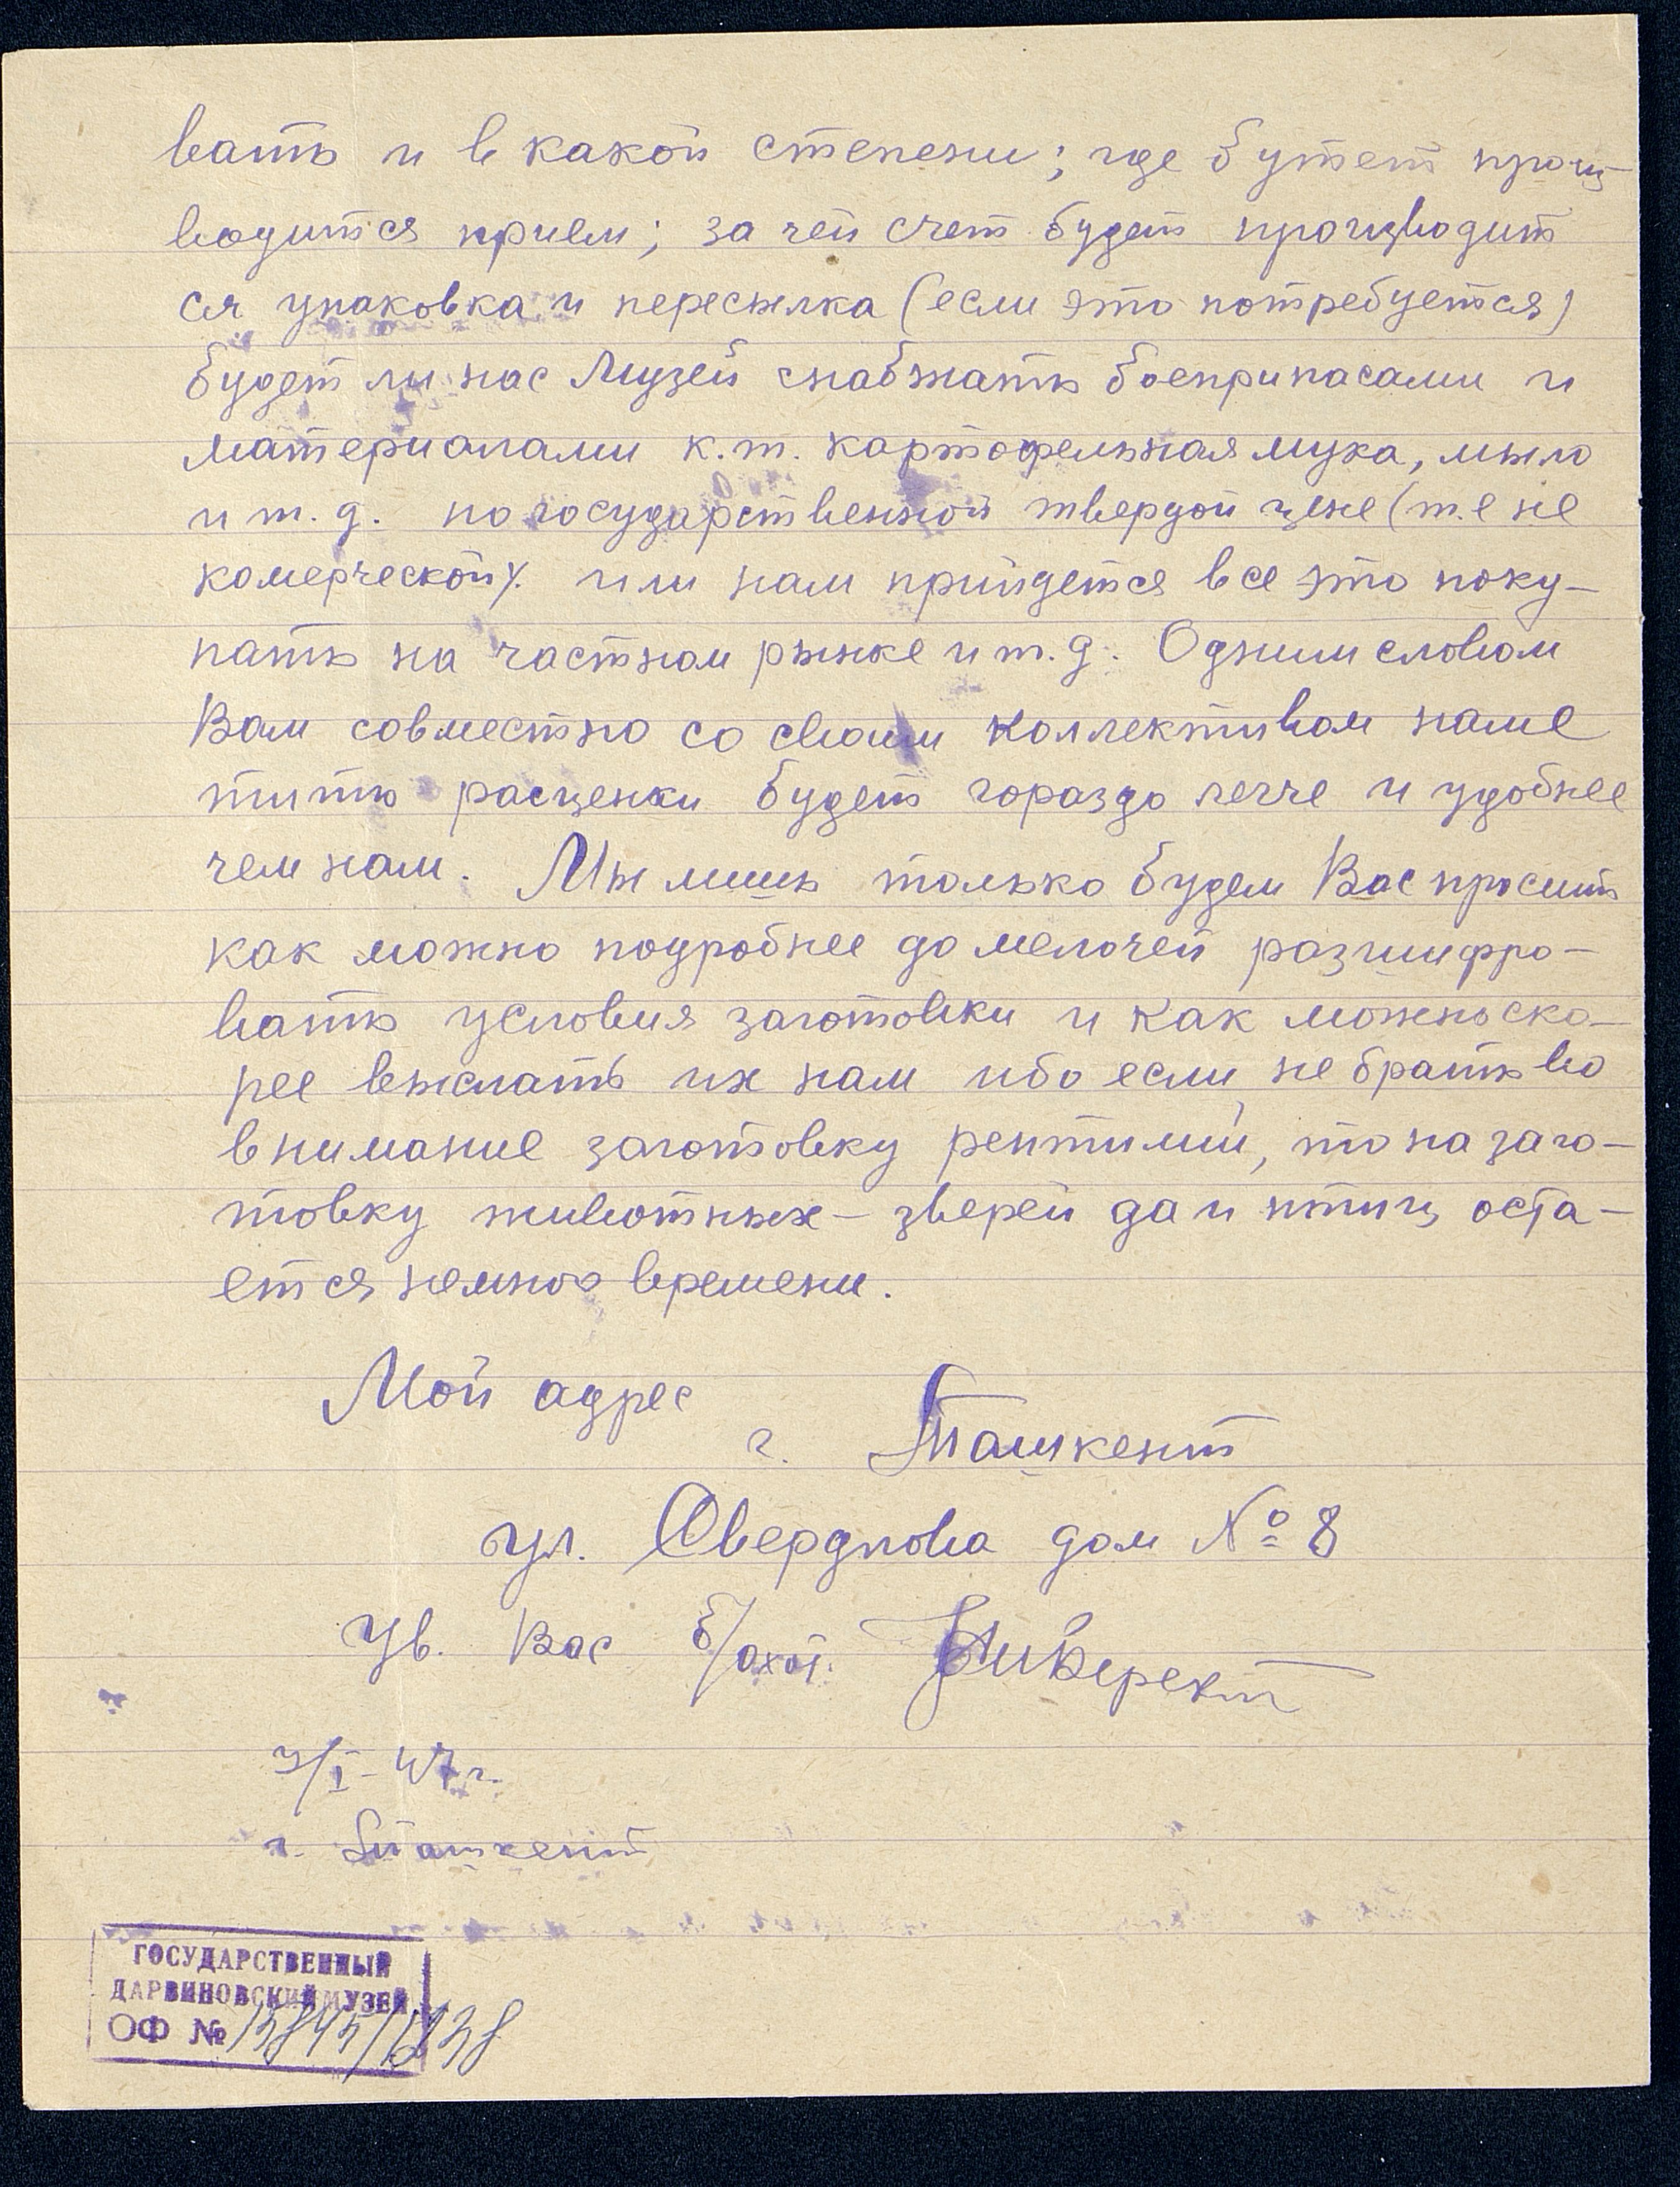 вать и в какой степени; где бутет произ-
водится прием; за чей счет будет производит
ся упаковка и пересылка (если это потребуется)
будет ли нас Музей снабжать боеприпасами и
материалами к.т. картофельная мука, мыло
и т.д. по государственной твердой цене (т.е не
комерческой). или нам прийдется все это поку-
пать на частном рынке и т.д. Одним словом
Вам совместно со своим коллективом наме
тить расценки будет гораздо легче и удобнее
чем нам. Мы лишь только будем Вас просить
как можно подробнее до мелочей разшифро-
вать условия заготовки и как можно ско-
рее выслать их нам ибо если не брать во
внимание заготовку рептилий, то на заго-
товку животных - зверей да и птиц оста-
ется немного времени.
Мой адрес
г. Ташкент
ул. Свердлова дом № 8
Ув. Вас б/охот.
3/I-47 г.
г. Ташкент
ГОСУДАРСТВЕННЫЙ
ДАРВИНОВСКИЙ МУЗЕЙ
ОФ №